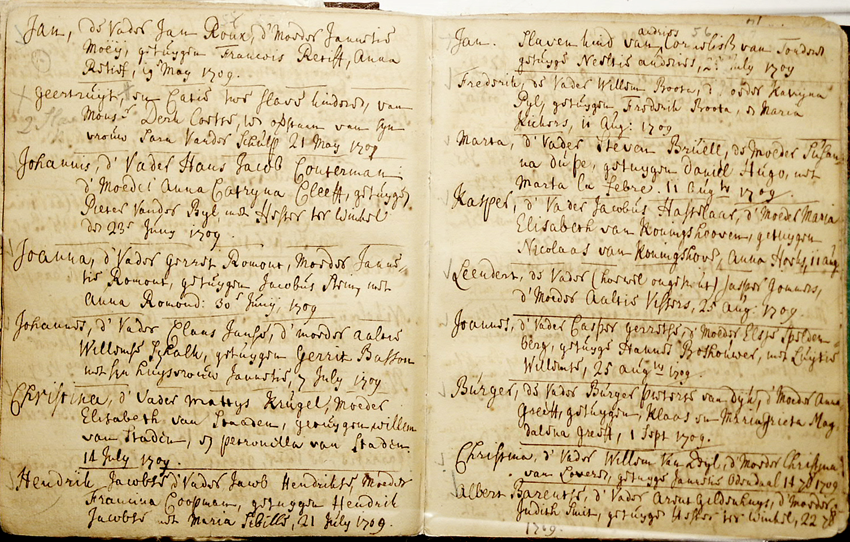 Jan, de Vader Jan Roux, d'Moeder Jannetie
Moeij, getuygen Francois Retiff, Anna
Retief, 19 May 1709.
geertruijt, en Catis twe slave kinderen, van
Mons.r Derk Coetse, ter van syn
vrouw Sara Vander Schulp 21 May 1709
Johannis, d'Vader Hans Jacob Conterman
d'Moeder Anna Catryna Cleeff, getuygen
Pieter Vander Byl met Hester ter Winkel
de 23e Juny 1709.
Joanna, d'Vader gerret Romont, Moeder Janne-
tie Romont, getuygen Jacobus met
Anna Romond: 30e Junij, 1709
Johannes, d'Vader Claas Janse, d'moeder aaltie
Willemse Schalk, getuygen Gerrit Basson
met syn huysvrouw Jannetie, 7 July 1709
Christina, d'Vader mattys Krugel, Moeder
Elisabeth van Staaden, getuygen willem
van Staden, en petronella van Staden
14 July 1709.
Hendrik Jacobse d'Vader Jacob Hendrikse Moeder
Francina Coopman, getuygen Hendrik
Jacobse met Maria Sibille, 21 July 1709.
56
andries
Jan. Slaven kind van Cornelis van
getuyge Neeltie andries, July 1709
Frederik, de Vader Willem Boota, d'Moeder Katryna
Pyl, getuygen Frederik Boota, en Maria
Kickers, 11 Aug: 1709
Marta, d'Vader Steven Bruell, de Moeder Susan
na dupe, getuygen Daniel Hugo, met
Marta la Febre. 11 Aug 1709.
Kasper, d'Vader Jacobus Hasselaar, d'Moeder Maria
Elisabeth van Koningshooven, getuygen
Nicolaas van Koningshoven, Anna 11 aug
Leendert, de Vader (hoewel ongetrout) Jasper
d'Moeder Aaltie Vissers, 25 aug: 1709.
Joannes, d'Vader Casper gerretse, d'Moeder Elsie Spolden
berg, getuyge Hannes Boshouwer, met
Willemse, 25 aug 1709.
Burger, de Vader Burger pieterse van dyk, d'Moeder Anna
Greeff, getuygen, Klaas en Margrieta Mag
dalena greeff, 1 Sept 1709.
Christina, d'Vader Willem Van Zyl, d'Moeder Christina
van Loveren, getuyge Jannetie Odendal 14 7b 1709
Albert Barentse, d'Vader Arent Gildenhuys, d'Moeder
Judith Smit, getuyge Hester ter Winkel, 22 7b
1709.